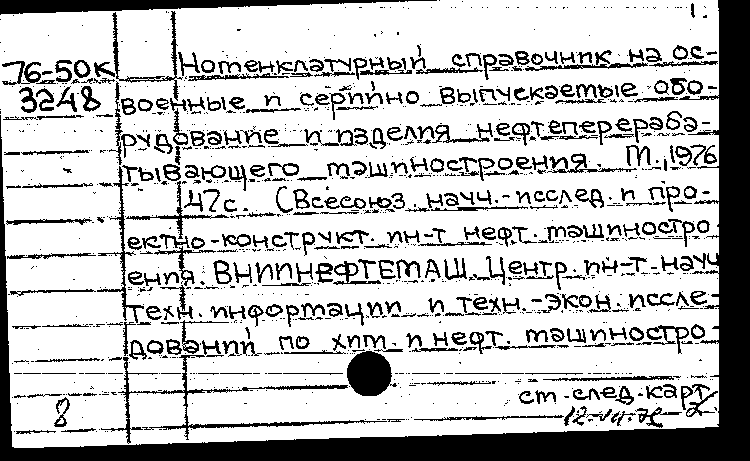 1.
76-50к Номенклатурный справочник на ос-
3248 военные и серийно выпускаемые обо-
рудование и изделия нефтеперераба-
тывающего машиностроения. М., 1976
47с. (Всесоюз. науч.-исслед. и про-
ектно-конструкт. ин-т нефт. машиностро
ения. ВНИИНЕФТЕМАШ. Центр. ин-т науч
техн. информации и техн.-экон. иссле-
дований по хим. и нефт. машиностро-
ст. след. карт
8